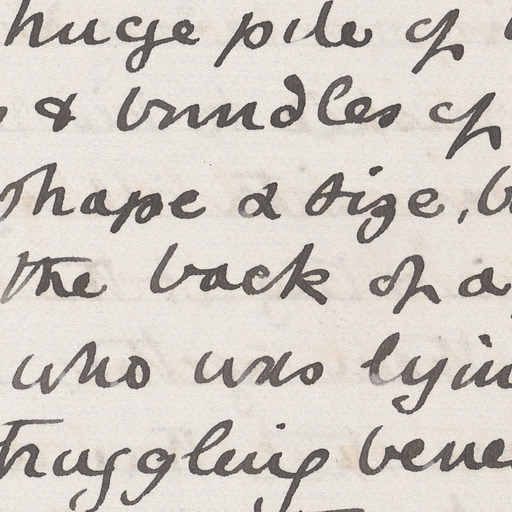 huge pile of
& bundles of
shape & size, b
the back of a
who was lyin
truggling bene